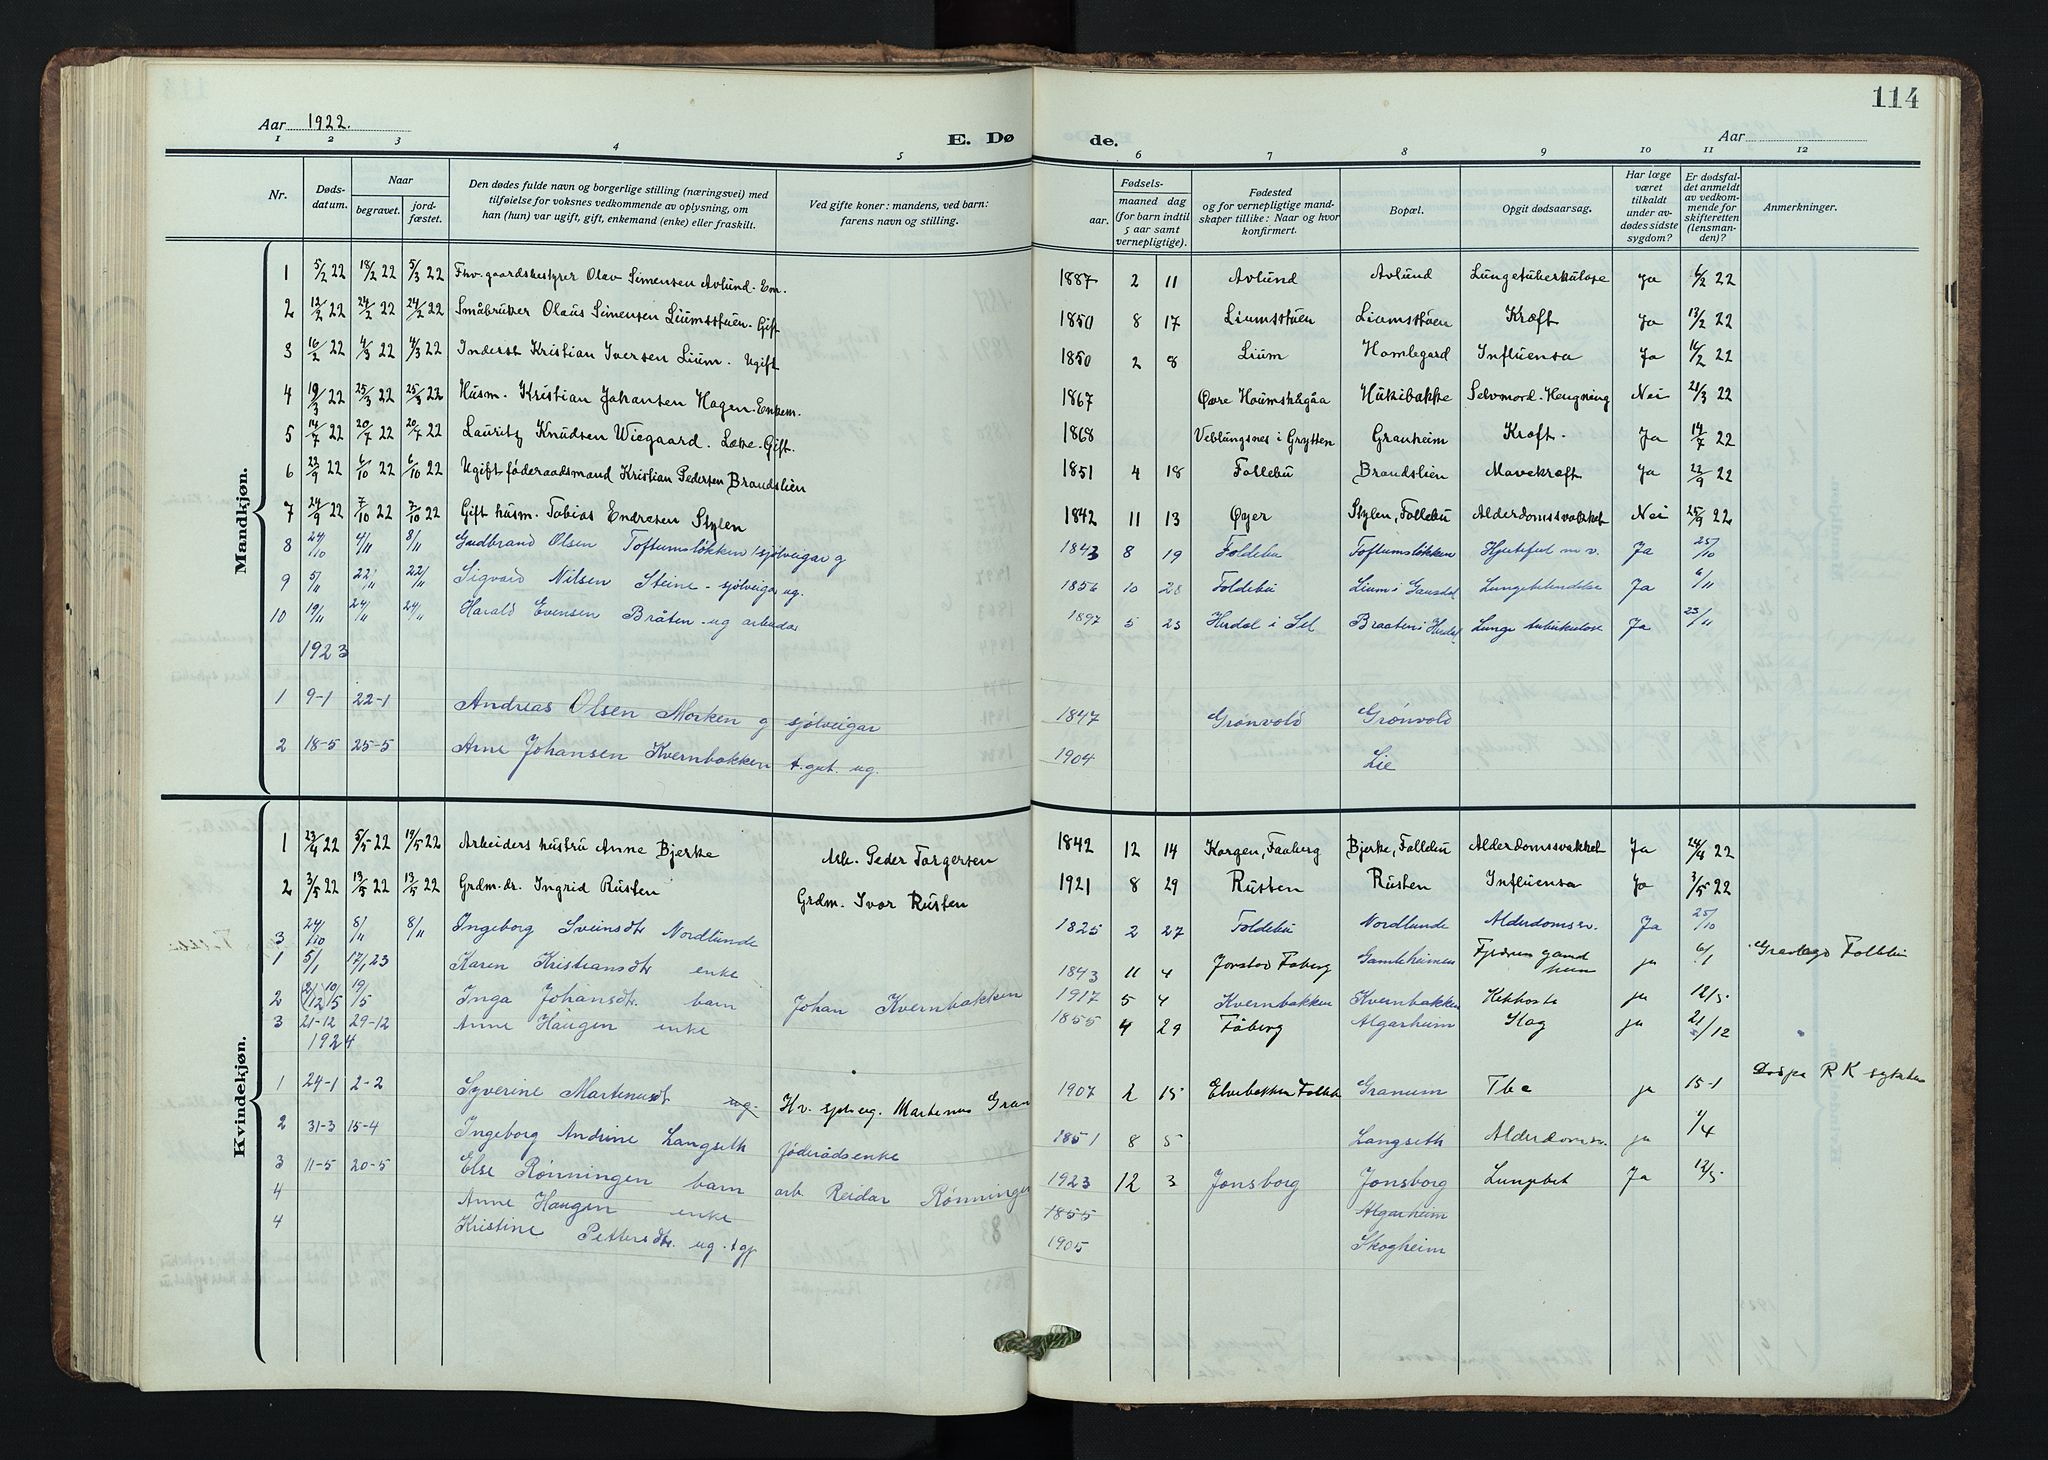 114
Aar 1922.
E. Dø de.
Aar
1 2 3 4 5 6 7 8 9 10 11 12
Nr.
Døds-
datum.
Naar
begravet.
jord-
fæstet.
Den dødes fulde navn og borgerlige stilling (næringsvei) med
tilføielse for voksnes vedkommende av oplysning, om
han (hun) var ugift, gift, enkemand (enke) eller fraskilt.
Ved gifte koner: mandens, ved barn:
farens navn og stilling.
Fødsels-
aar. maaned dag
(for barn indtil
5 aar samt
vernepligtige).
Fødested
og for vernepligtige mand-
skaper tillike: Naar og hvor
konfirmert.
Bopæl.
Opgit dødsaarsag.
Har læge
været
tilkaldt
under av-
dødes sidste
sygdom?
Er dødsfal-
det anmeldt
av vedkom-
mende for
skifteretten
(lensman-
den)?
Anmerkninger.
Mandkjøn.
1 5/2 22 18/2 22 5/3 22 Fhv. gaardsbestyrer Olav Simensen Avlund. Em. 1887 2 11 Avlund Avlund Lungetuberkulose Ja 6/2 22
2 12/2 22 24/2 22 24/2 22 Småbruker Olaus Simensen Liumsstuen. Gift 1850 8 17 Liumsstuen Liumsstuen Kræft Ja 13/2 22
3 16/2 22 4/3 22 4/3 22 Inderst Kristian Iversen Lium. Ugift 1850 2 8 Lium Homlegard Influensa Ja 16/2 22
4 19/3 22 25/3 22 25/3 22 Husm. Kristian Johansen Hagen. Enkem. 1867 Øvre Haumskågåa Hukibakke Selvmord. Hengning Nei 21/3 22
5 14/7 22 20/7 22 20/7 22 Lauritz Knudsen Wiegaard. Læke. Gift. 1868 Veblungsnes i Grytten Granheim Kræft. Ja 14/7 22
6 22/9 22 6/10 22 6/10 22 Ugift føderaadsmand Kristian Pedersen Brandslien 1851 4 18 Follebu Brandslien Mavekræft Ja 22/9 22
7 24/9 22 7/10 22 7/10 22 Gift husm. Tobias Endresen Stylen 1842 11 13 Øyer Stylen, Follebu Alderdomssvakket Nei 25/9 22
8 24/10 4/11 8/11 Gudbrand Olsen Toftumsløkken sjølveigar g 1843 8 19 Foldebu Toftumsløkken Hjertefeil m v. Ja 25/10
9 5/11 22/11 22/11 Sigvard Nilsen Steine - sjølveigar ug. 1856 10 28 Foldebu Lium i Gausdal Lungebetendelse Ja 6/11
10 19/11 24/11 24/11 Harald Evensen Bråten - ug arbeidar 1897 5 23 Heidal i Sel Braaten i Heidal Lunge tuberkulose Ja 23/11
1923
1 9-1 22-1 Andreas Olsen Morken g sjølveigar 1847 Grønvold Grønvold
2 18-5 25-5 Arne Johansen Kvernbakken t.gut. ug. 1904 Lie
Kvindekjøn.
1 23/4 22 5/5 22 19/5 22 Arbeiders hustru Anne Bjerke Arb. Peder Torgersen 1842 12 14 Korgen, Faaberg Bjerke, Follebu Alderdomssvakket Ja 24/4 22
2 3/5 22 13/5 22 13/5 22 Grdm. dr. Ingrid Rusten Grdm. Ivar Rusten 1921 8 29 Rusten Rusten Influensa Ja 3/5 22
3 24/10 8/11 8/11 Ingeborg Sveinsdtr Nordlunde 1825 2 27 Foldebu Nordlunde Alderdomssv. Ja 25/10
1 5/1 17/1 23 Karen Kristiansdtr enke 1843 11 4 Jorstad Faberg Gamleheimen ja 6/1 Gravlagd Follebu
2 10/5 19/5 Inga Johansdtr. barn Johan Kvernbakken 1917 5 4 Kvernbakken Kvernbakken Kikhoste ja 12/5
3 21-12 29-12 Anne Haugen enke 1855 4 29 Fåberg Algarheim Slag ja 21/12
1924
1 24-1 2-2 Syverine Martenusdt ug. Hv. sjølveig. Martenus Gran 1907 2 15 Elvebakken Folleb Granum Tbc ja 15-1 R K sykehus
2 31-3 15-4 Ingeborg Andrine Langseth føderådsenke 1851 8 5 Langseth Alderdomsv. ja 1/4
3 11-5 20-5 Else Rønningen barn arb. Reidar Rønningen 1923 12 3 Jonsborg Jonsborg Lungebet Ja 12/5
4 Anne Haugen enke 1855 Algarheim
4 Kristine Pettersdtr. ug. tgj 1905 Skogheim